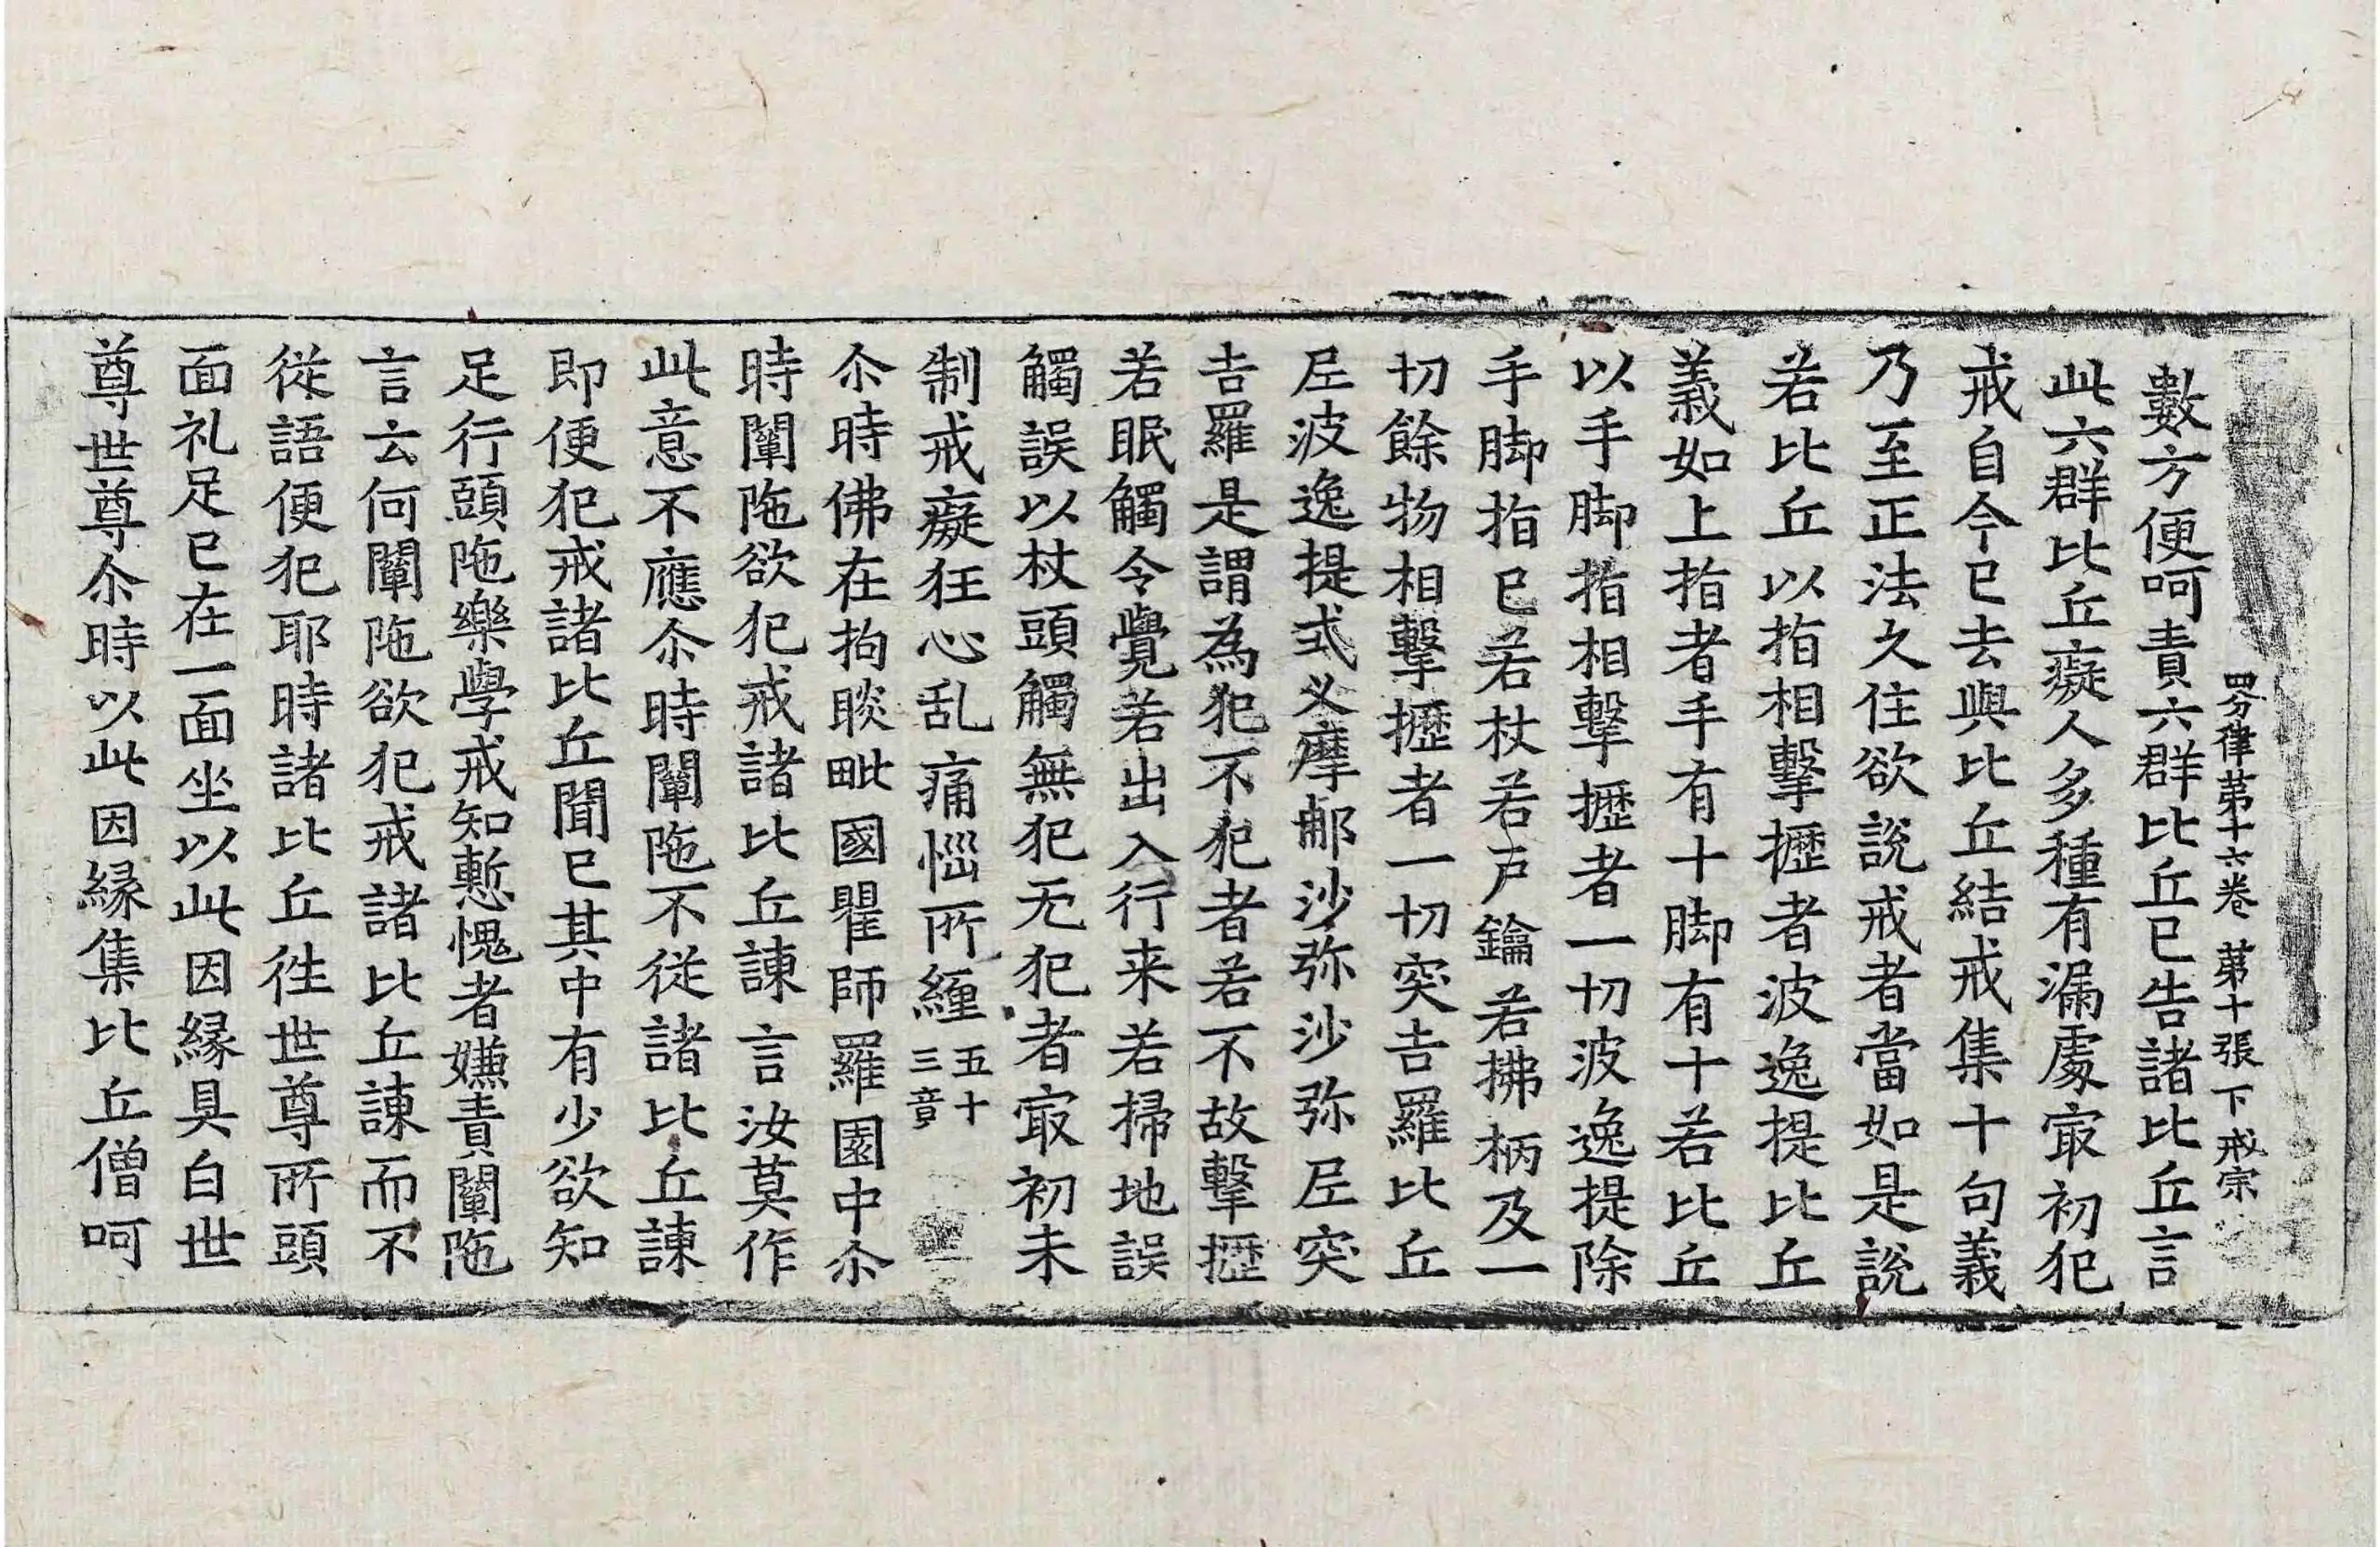 四分律苐十六卷 苐十張 下 戒宗
數方便呵責六群比丘已告諸比丘言
此六群比丘癡人多種有漏處㝡初犯
戒自今已去與比丘結戒集十句義
乃至正法久住欲說戒者當如是說
若比丘以指相擊攊者波逸提比丘
義如上指者手有十脚有十若比丘
以手脚指相擊攊者一切波逸提除
手脚指已若杖若戶鑰若拂柄及一
切餘物相擊攊者一切突吉羅比丘
尼波逸提式叉摩那沙弥沙弥尼突
吉羅是謂為犯不犯者若不故擊攊
若眠觸令覺若出入行来若掃地誤
觸誤以杖頭觸無犯无犯者㝡初未
制戒癡狂心乱痛惱所纏五十三竟
尒時佛在拘睒毗國瞿師羅園中尒
時闡陁欲犯戒諸比丘諫言汝莫作
此意不應尒時闡陁不從諸比丘諫
即便犯戒諸比丘聞已其中有少欲知
足行頭陁樂學戒知慙愧者嫌責闡陁
言云何闡陁欲犯戒諸比丘諫而不
從語便犯耶時諸比丘徃世尊所頭
面礼足已在一面坐以此因緣具白世
尊世尊尒時以此因緣集比丘僧呵